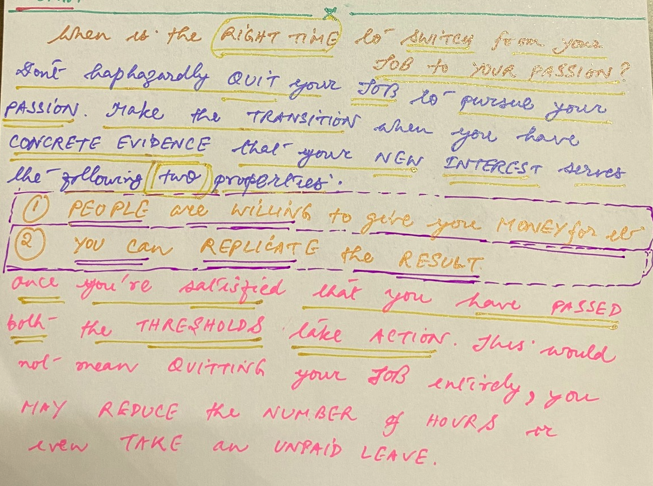 When is the RIGHT TIME to SWITCH from your
JOB to YOUR PASSION?
Don't haphazardly QUIT your JOB to pursue your
PASSION. Make the TRANSITION when you have
CONCRETE EVIDENCE that your NEW INTEREST serves
the following two properties.
① PEOPLE are WILLING to give you MONEY for it
② YOU can REPLICATE the RESULT
once you're satisfied that you have PASSED
both the THRESHOLDS take ACTION. This would
not mean QUITTING your JOB entirely, you
MAY REDUCE the NUMBER of HOURS or
even TAKE an UNPAID LEAVE.